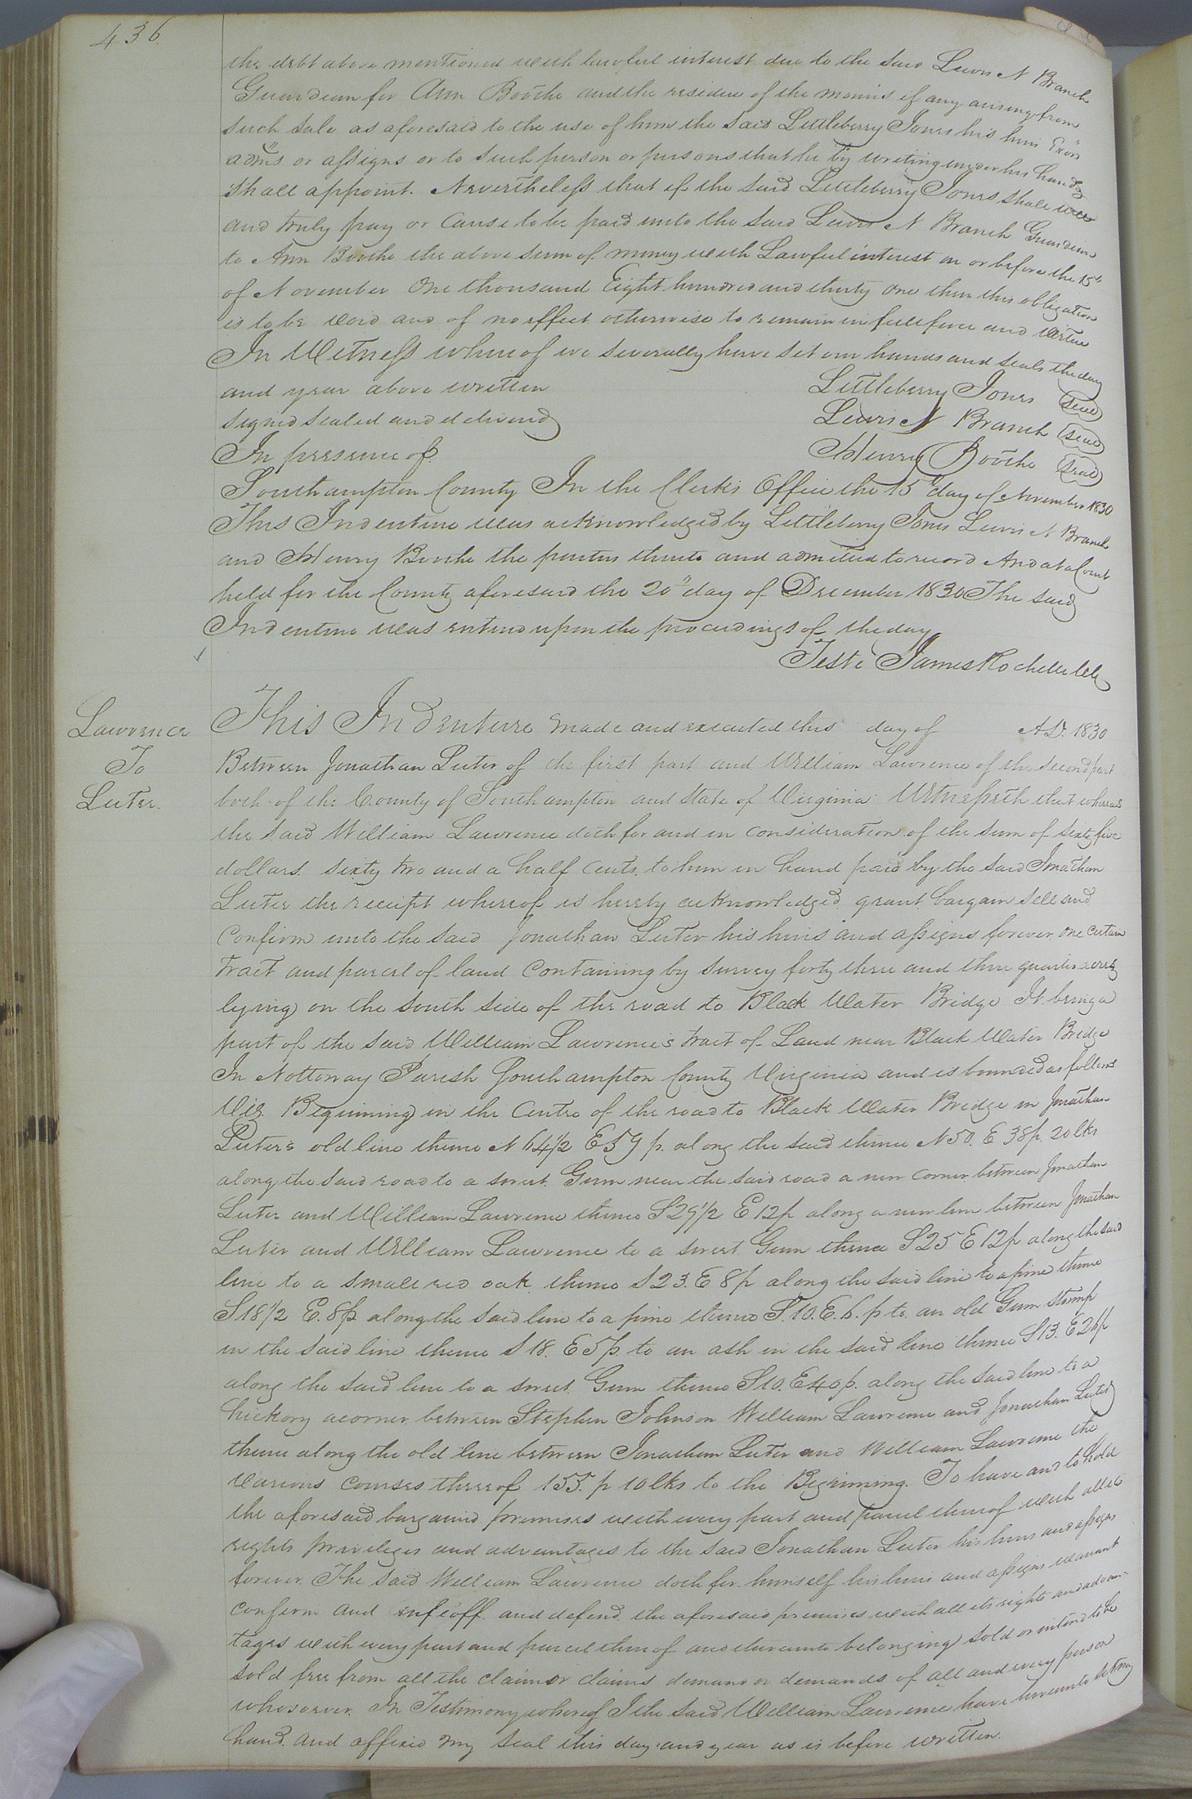 436
the debt above mentioned with lawful interest due to the said Lewis N Branch
Guardian for Ann Boothe and the residue of the monies if any arising from
such sale as aforesaid to the use of him the said Littleberry Jones his heirs Exors
adms or assigns or to such person or persons that he by writing under his hand
shall appoint. Nevertheless that if the said Littleberry Jones shall well
and truly pay or cause to be paid unto the said Lewis N Branch Guardian
to Ann Boothe the above sum of money with Lawful interest on or before the 15th
of November One thousand Eight hundred and thirty one then this obligation
is to be void and of no effect otherwise to remain in full force and virtue
In Witness whereof we severally have set our hands and seals the day
and year above written
Littleberry Jones Seal
signed sealed and delivered
Lewis N Branch Seal
In presence of
Henry Boothe Seal
Southampton County In the Clerk's Office the 15th day of November 1830
This Indenture was acknowledged by Littleberry Jones Lewis N Branch
and Henry Boothe the parties thereto and admitted to record And at a Court
held for the County aforesaid the 20th day of December 1830 The said
Indenture was entered upon the proceedings of the day
Teste James Rochelle Clk
Lawrence
To
Luter
This Indenture made and executed this day of A.D. 1830
Between Jonathan Luter of the first part and William Lawrence of the second part
both of the County of Southampton and State of Virginia Witnesseth that whereas
the said William Lawrence doth for and in consideration of the sum of sixty five
dollars sixty two and a half cents to him in hand paid by the said Jonathan
Luter the receipt whereof is hereby acknowledged grant bargain sell and
Confirm unto the said Jonathan Luter his heirs and assigns forever, one certain
tract and parcel of land containing by survey forty three and three quarter acres
lying on the south side of the road to Black Water Bridge It being a
part of the said William Lawrence's tract of Land near Black Water Bridge
In Nottoway Parish Southampton County Virginia and is bounded as follows
Viz Beginning in the Centre of the road to Black Water Bridge in Jonathan
Luter's old line thence N 64½ E 59 p. along the said thence N 50. E 38 p. 20 lks
along the said road to a sweet Gum near the said road a new corner between Jonathan
Luter and William Lawrence thence S 29½ E 12p along a new line between Jonathan
Luter and William Lawrence to a sweet Gum thence S 25 E 12p along the said
line to a small red oak thence S 23. E 8p along the said line to a pine thence
S 18½ E. 8p along the said line to a pine thence S. 10. E. 6. p to an old Gum stump
in the said line thence S 18. E 5p. to an ash in the said line thence S 13. E 26p
along the said line to a sweet Gum thence S 10. E 40 p. along the said line to a
hickory a corner between Stephen Johnson William Lawrence and Jonathan Luter
thence along the old line between Jonathan Luter and William Lawrence the
various courses thereof 155. p 10 lks to the Beginning. To have and to Hold
the aforesaid bargained premises with every part and parcel thereof with all its
rights privileges and advantages to the said Jonathan Luter his heirs and assigns
forever. The said William Lawrence doth for himself his heirs and assigns warrant
confirm and infeoff and defend the aforesaid premises with all its rights and advan-
tages with every part and parcel thereof and thereunto belonging sold or intend to be
sold free from all the claim or claims demand or demands of all and every person
whosoever. In Testimony whereof I the said William Lawrence have hereunto set my
hand and affixed my seal this day and year as is before written.